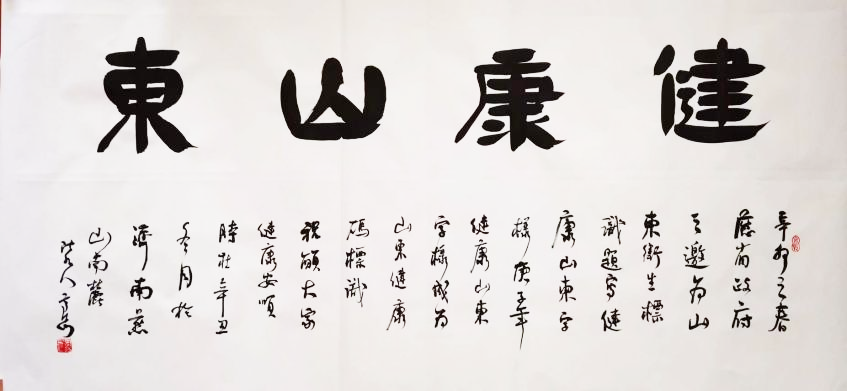 健康山東
辛卯之春
應省政府
之邀為山
東衛生標
識題寫健
康山東字
樣庚子年
健康山東
字樣成為
山東健康
碼標識
祝願大家
健康安順
時在辛丑
冬月於
濟南燕
山南麓
人